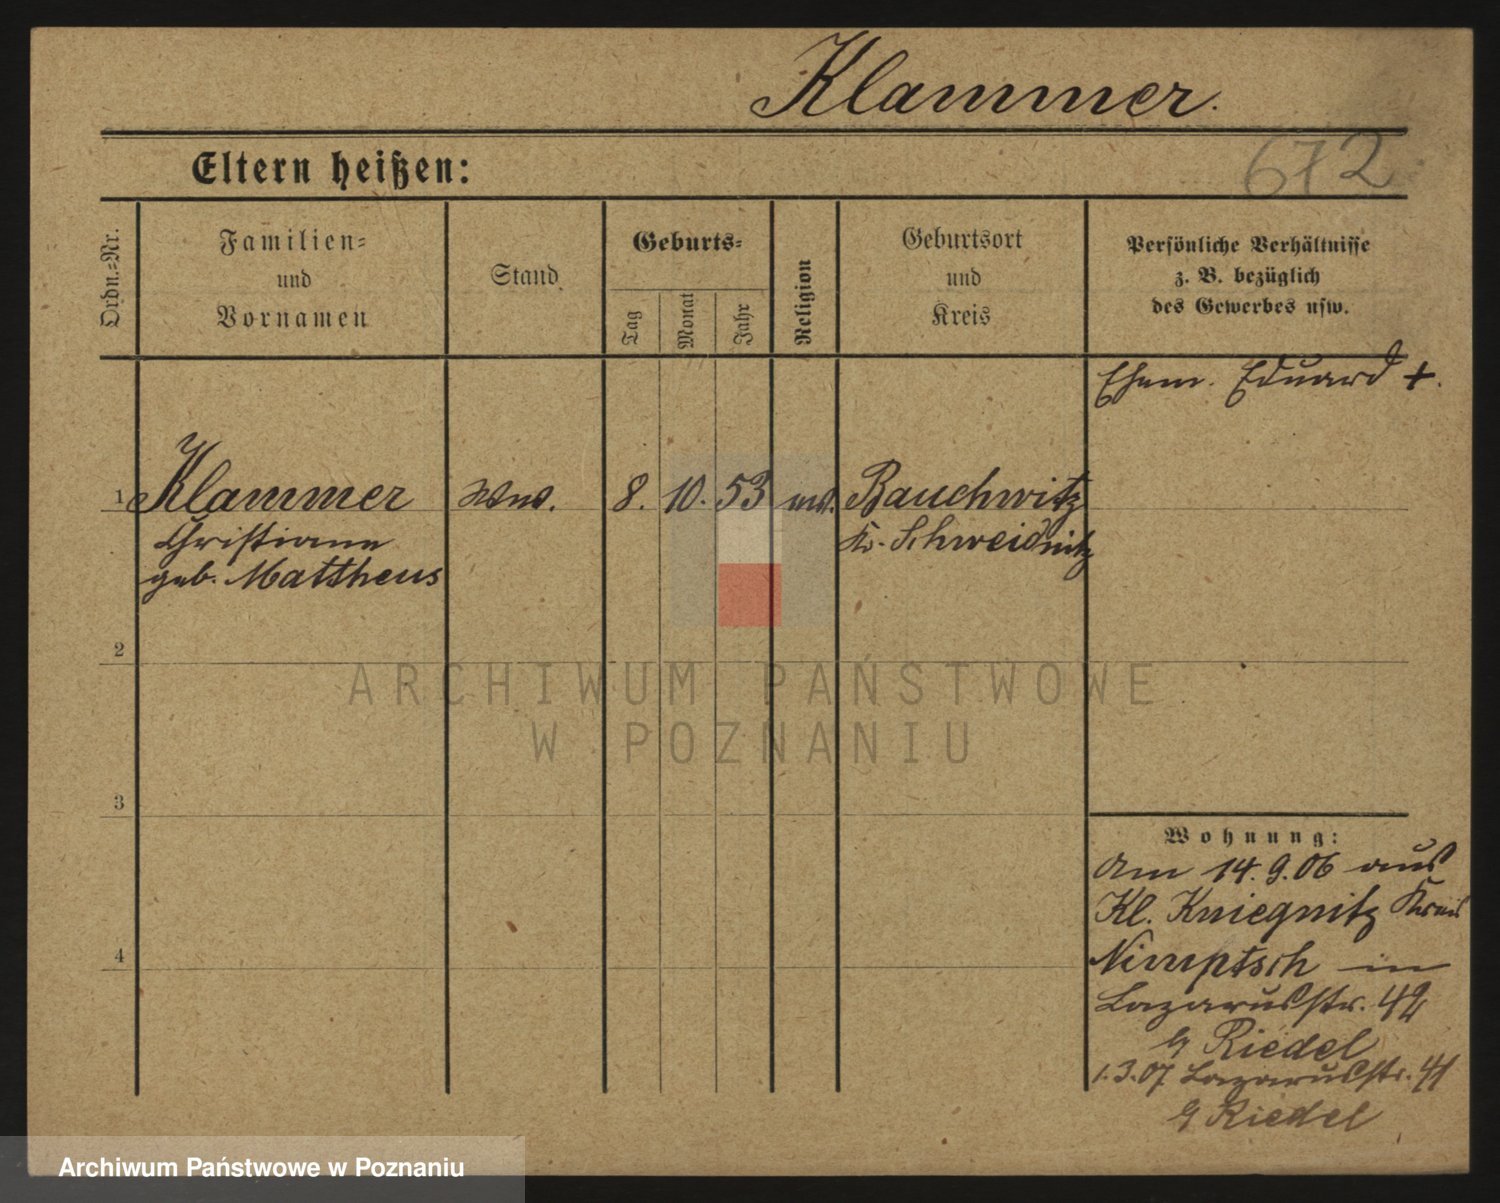 Klammer.
Eltern heißen:
672
Ordn.=Nr.
Familien=
und
Vornamen
Stand
Geburts=
Tag
Monat
Jahr
Religion
Geburtsort
und
Kreis
Persönliche Verhältnisse
z. B. bezüglich
des Gewerbes usw.
Ehem. Eduard +.
1 Klammer Wwe. 8. 10. 53 ev. Bauchwitz
Christiane Kr. Schweidnitz
geb. Mattheus
2
ARCHIWUM PAŃSTWOWE
W POZNANIU
3
Wohnung:
Am 14.9.06 aus
Kl. Kniegnitz Kreis
Nimptsch in
Lazarusstr. 42
b/ Riedel
1.3.07 Lazarusstr. 41
b/ Riedel
4
Archiwum Państwowe w Poznaniu